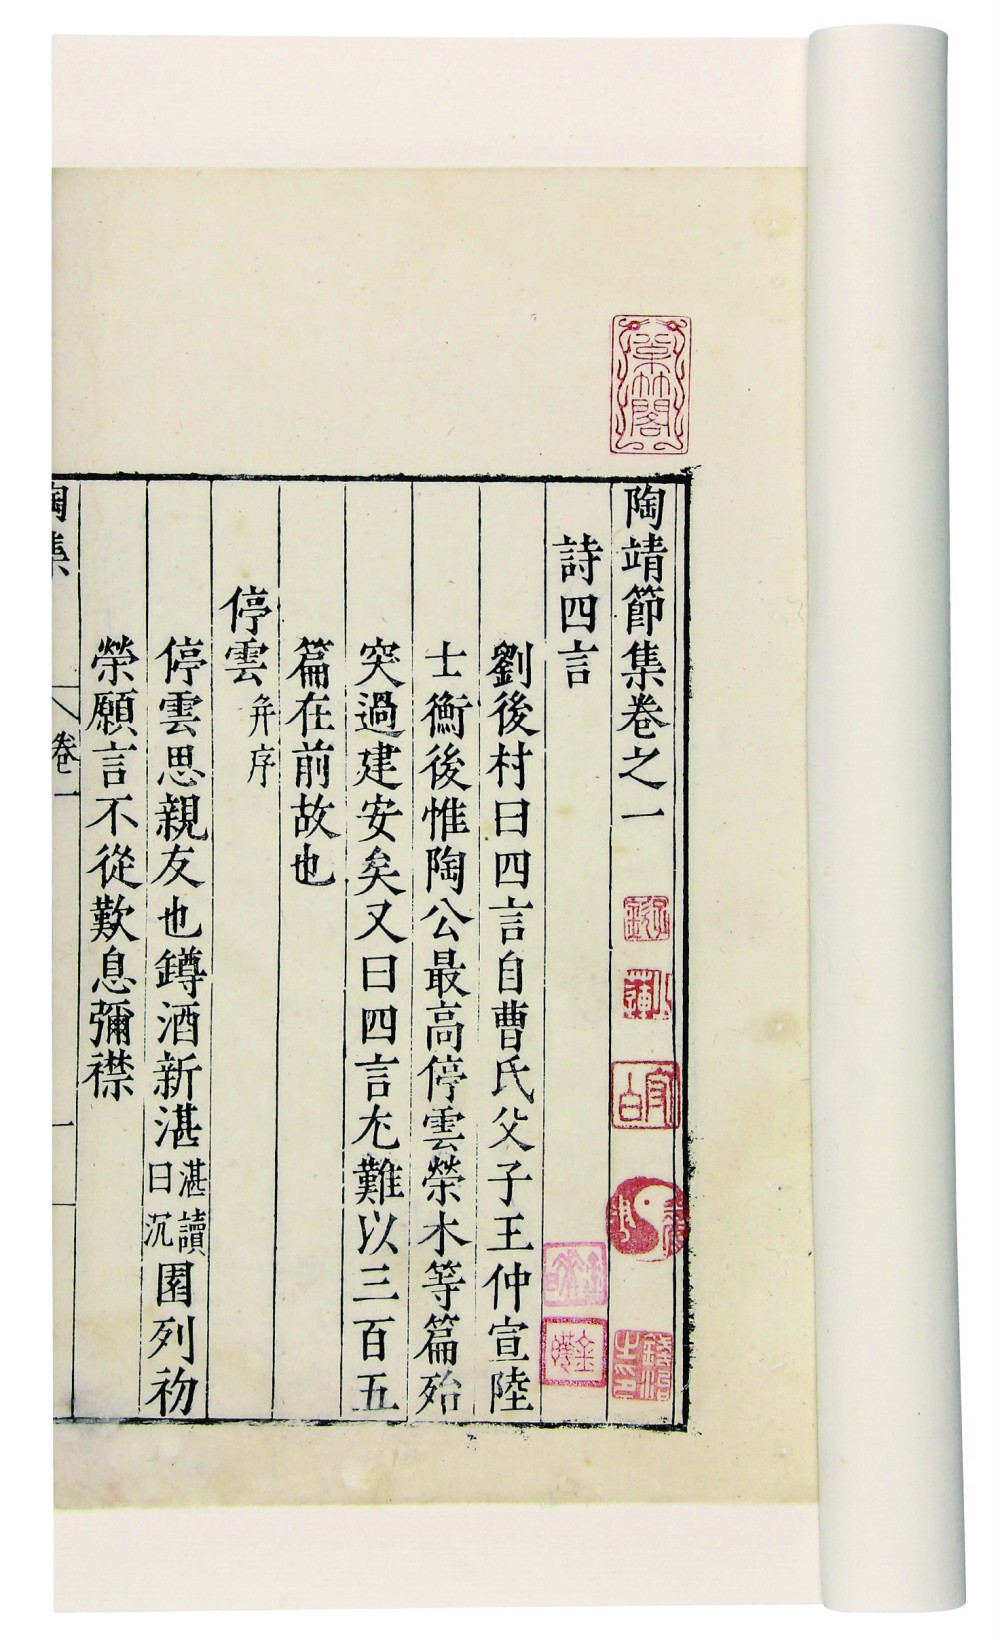 陶靖節集卷之一
詩四言
劉後村曰四言自曹氏父子王仲宣陸
士衡後惟陶公最高停雲榮木等篇殆
突過建安矣又曰四言尤難以三百五
篇在前故也
停雲并序
停雲思親友也罇酒新湛湛讀曰沉園列初
榮願言不從歎息彌襟
陶集 卷一 一